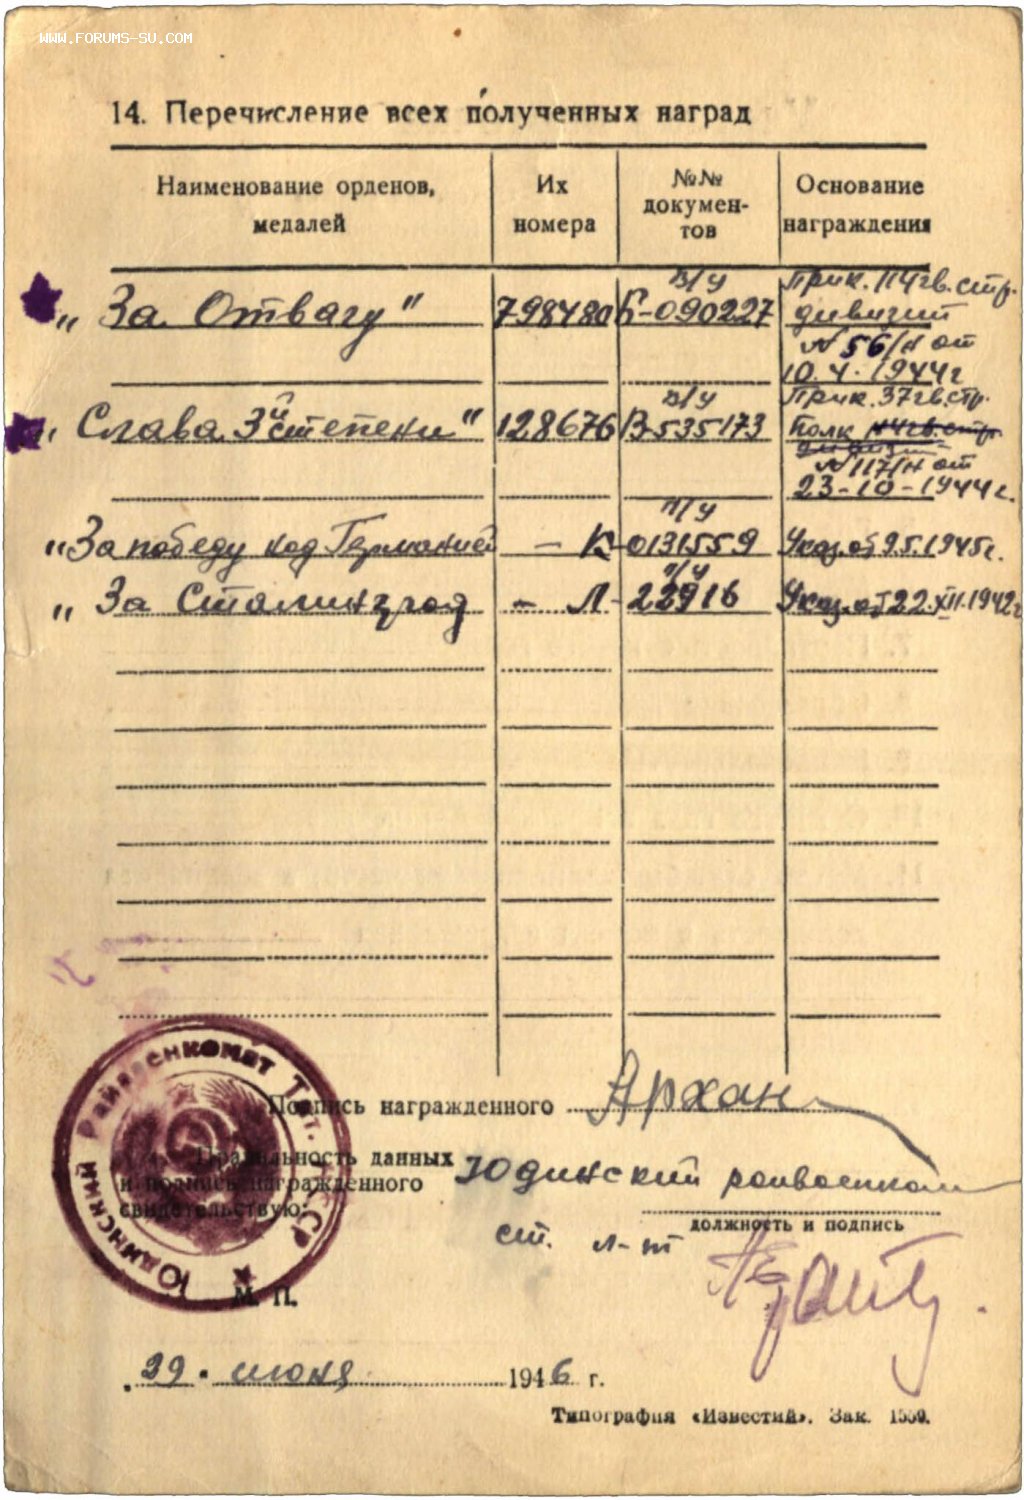 WWW.FORUMS-SU.COM
14. Перечисление всех полученных наград
Наименование орденов, медалей
Их номера
№№ документов
Основание награждения
"За Отвагу" 798480 в/у Б-090227 Прик. 114 гв. стр. дивизии N 56/н от 10.4.1944 г
"Слава 3й степени" 128676 в/у В-535173 Прик. 37 гв. стр. полк N 117/н от 23-10-1944 г.
"За победу над Германией — п/у К-0131559 Указ. от 9.5.1945 г.
"За Сталинград — п/у Л-22916 Указ. от 22.XII.1942 г
Подпись награжденного Архан
Правильность данных
и подпись награжденного
свидетельствую:
Юдинский райвоенком
должность и подпись
ст. л-т
Юдинский Райвоенкомат Тат. АССР
М. П.
29. июня 1946 г.
Типография «Известий». Зак. 1559.